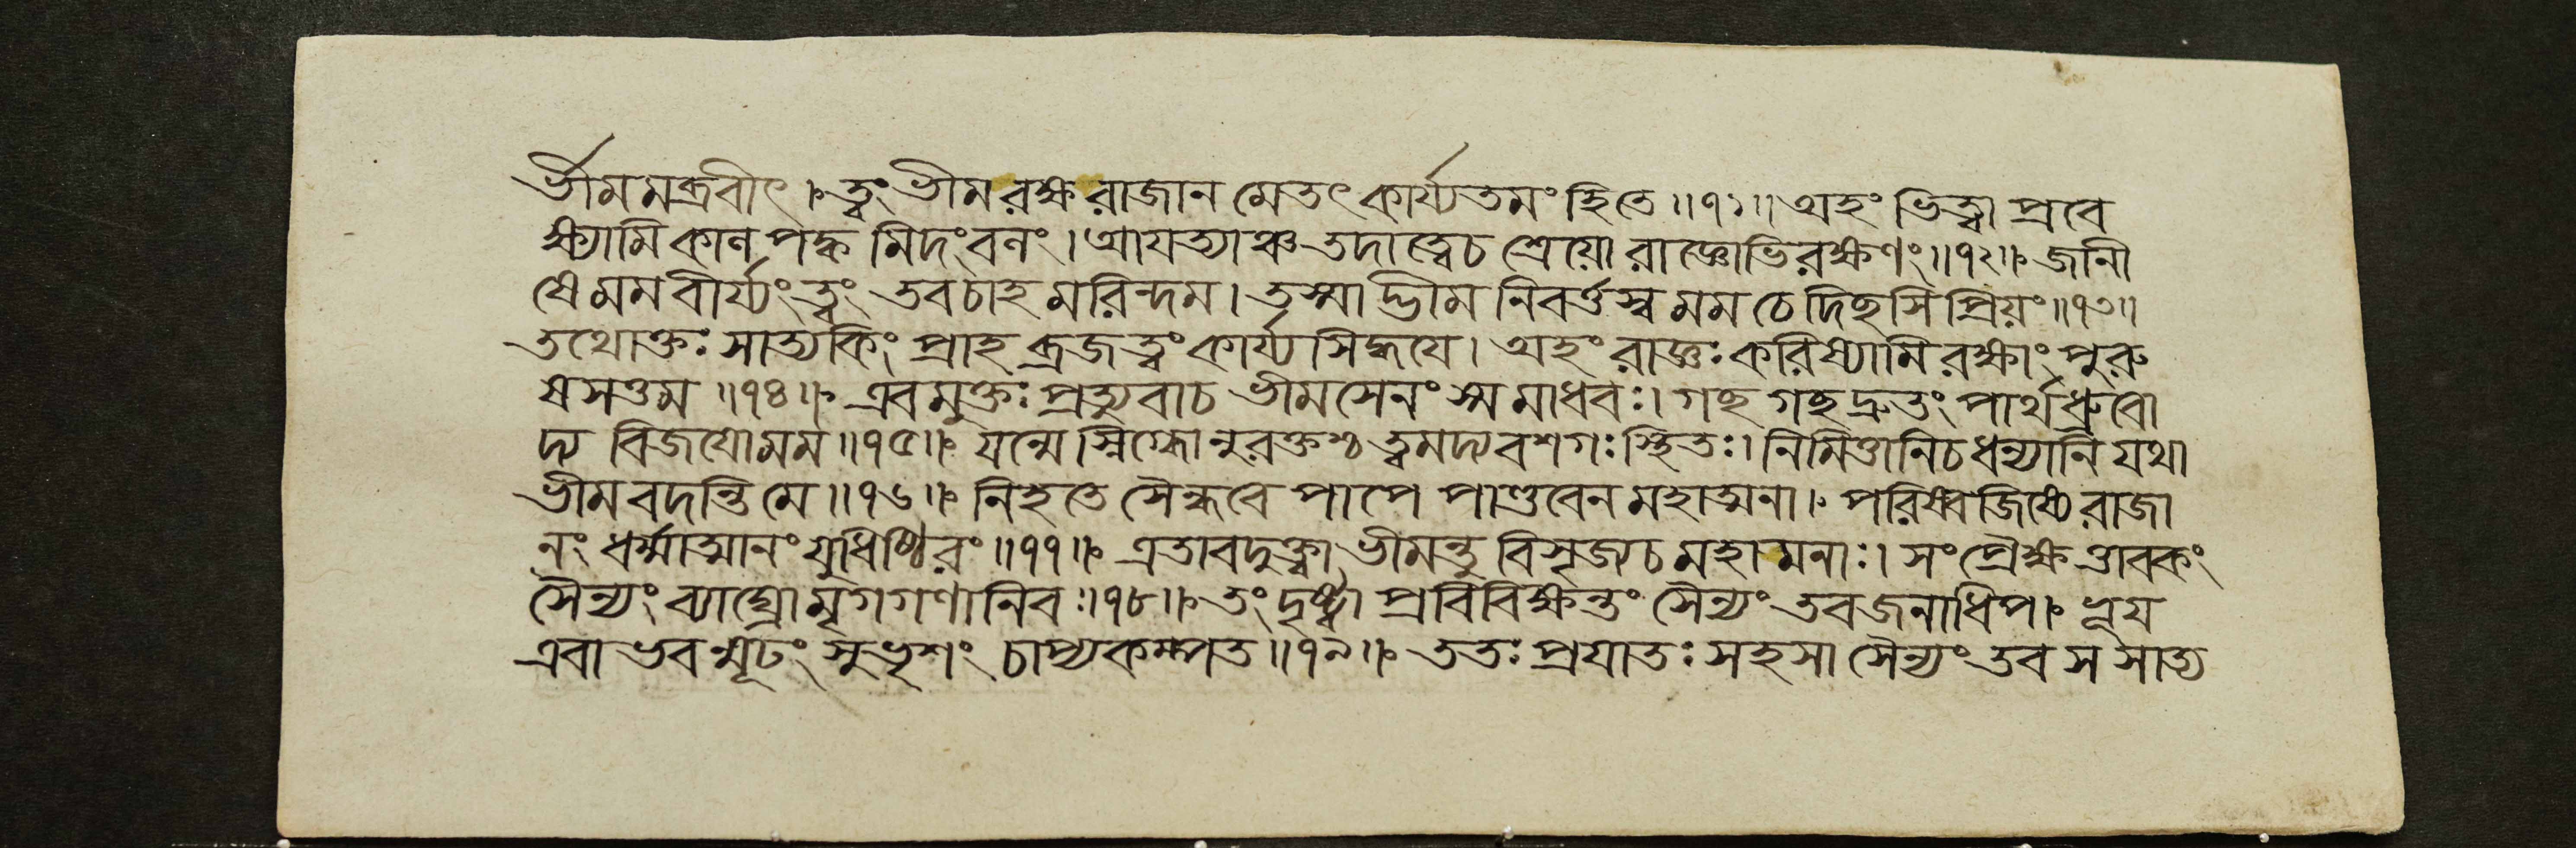 ভীমমব্রবীৎ। ত্বং ভীম রক্ষ রাজান মেতৎ কার্য্যতমং হি তে॥৭১॥ অহং ভিত্ত্বা প্রবে
ক্ষ্যামি কালপক্ব মিদং বলং। আয়ত্যাঞ্চ তদাত্বে চ শ্রেয়ো রাজ্ঞোভিরক্ষণং॥৭২॥ জানী
ষে মম বীর্য্যং ত্বং তব চাহ মরিন্দম। তস্মাদ্ভীম নিবর্ত্তস্ব মম চেদিছসি প্রিয়ং॥৭৩॥
তথোক্তঃ সাত্যকিং প্রাহ ব্রজ ত্বং কার্য্যসিদ্ধয়ে। অহং রাজ্ঞঃ করিষ্যামি রক্ষাং পুরু
ষসত্তম॥৭৪॥ এবমুক্তঃ প্রত্যুবাচ ভীমসেনং স মাধবঃ। গছ গছ দ্রুতং পার্থ ধ্রুবো
দ্য বিজয়ো মম॥৭৫॥ যন্মে স্নিগ্ধোনুরক্তশ্চ ত্বমদ্য বশগঃ স্থিতঃ। নিমিত্তানি চ ধন্যানি যথা
ভীম বদন্তি মে॥৭৬॥ নিহতে সৈন্ধবে পাপে পাণ্ডবেন মহাত্মনা। পরিষ্বজিষ্যে রাজা
নং ধর্ম্মাত্মানং যুধিষ্ঠিরং॥৭৭॥ এতাবদুক্ত্বা ভীমন্তু বিসৃজ্য চ মহামনাঃ। সংপ্রৈক্ষত্তাবকং
সৈন্যং ব্যাঘ্রো মৃগগণানিবঃ॥৭৮॥ তং দৃষ্ট্বা প্রবিবিক্ষন্তং সৈন্যং তব জনাধিপ। ভূয়
এবাভবন্মূঢং সুভৃশং চাপ্যকম্পত॥৭৯॥ ততঃ প্রযাতঃ সহসা সৈন্যং তব স সাত্য